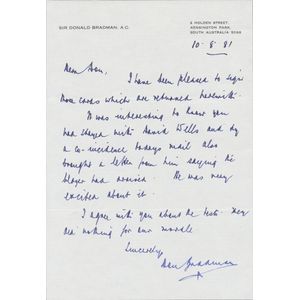 SIR DONALD BRADMAN, A.C.
2 HOLDEN STREET,
KENSINGTON PARK,
SOUTH AUSTRALIA 5068
10-8-81
Dear
I have been pleased to sign
more cards which are returned herewith.
It was interesting to know you
had stayed with David Wells and by
a co-incidence todays mail also
brought a letter from him saying the
blazer had arrived. He was very
excited about it.
I agree with you about the tests. They
did nothing for our morale.
Sincerely
Don Bradman